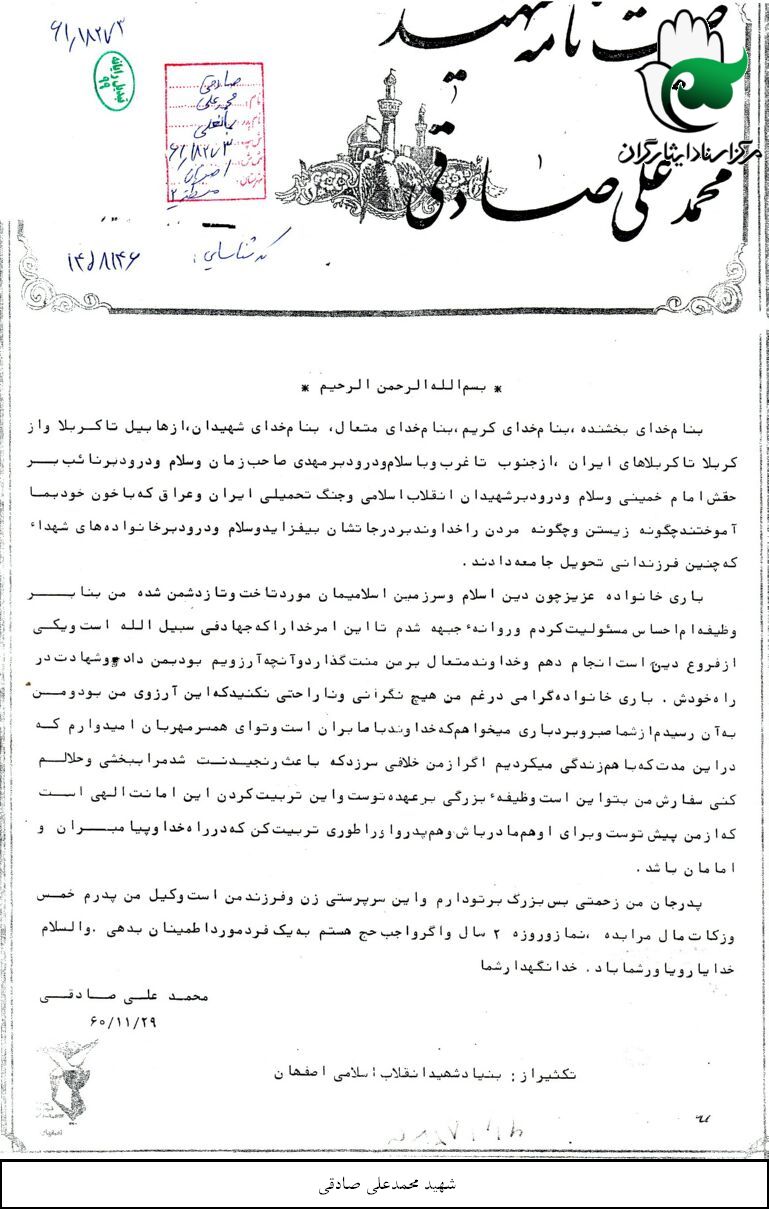 ۶۱/۱۸۲۷۳
وصیت نامه شهید
مرکز اسناد ایثارگران
محمد علی صادقی
تبدیل رایانه
۹۹
نام: صادقی
محمد علی
نام پدر:
۶۱/۱۸۲۷۳
اصفهان
منطقه ۲
کد شناسایی: ۱۴۵۸۱۴۶
* بسم الله الرحمن الرحیم *
بنام خدای بخشنده ،بنام خدای کریم ،بنام خدای متعال، بنام خدای شهیدان،ازهابیل تا کربلا واز
کربلا تا کربلاهای ایران ،ازجنوب تا غرب وباسلام ودرودبر مهدی صاحب زمان وسلام ودرودبرنائب بر
حقش امام خمینی وسلام ودرودبرشهیدان انقلاب اسلامی وجنگ تحمیلی ایران وعراق که باخون خودبما
آموختندچگونه زیستن وچگونه مردن راخداوندبردرجاتشان بیفزایدوسلام ودرودبرخانواده های شهداء
که چنین فرزندانی تحویل جامعه دادند .
باری خانواده عزیزچون دین اسلام وسرزمین اسلامیمان موردتاخت وتازدشمن شده من بنابر
وظیفه ام احساس مسئولیت کردم وروانهء جبهه شدم تا این امرخداراکه جهادفی سبیل الله است ویکی
ازفروع دین است انجام دهم وخداوندمتعال برمن منت گذاردوآنچه آرزویم بودبمن داد وشهادت در
راه خودش . باری خانواده گرامی درغم من هیچ نگرانی وناراحتی نکنیدکه این آرزوی من بودومن
به آن رسیدم ازشماصبروبردباری میخواهم که خداوندباصابران است وتوای همسرمهربان امیدوارم که
دراین مدت که باهم زندگی میکردیم اگرازمن خلافی سرزدکه باعث رنجیدنت شدمراببخشی وحلالم
کنی سفارش من بتواین است وظیفهء بزرگی برعهده توست واین تربیت کردن این امانت الهی است
که ازمن پیش توست وبرای اوهم مادرباش وهم پدرواوراطوری تربیت کن که درراه خداوپیامبران و
امامان باشد .
پدرجان من زحمتی بس بزرگ برتودارم واین سرپرستی زن وفرزندمن است وکیل من پدرم خمس
وزکات مال مرابده ،نمازوروزه ۲ سال واگرواجب حج هستم به یک فردمورداطمینان بدهی .والسلام
خدایارویاورشماباد. خدانگهدارشما
محمد علی صادقی
۶۰/۱۱/۲۹
تکثیراز: بنیادشهیدانقلاب اسلامی اصفهان
شهید محمدعلی صادقی